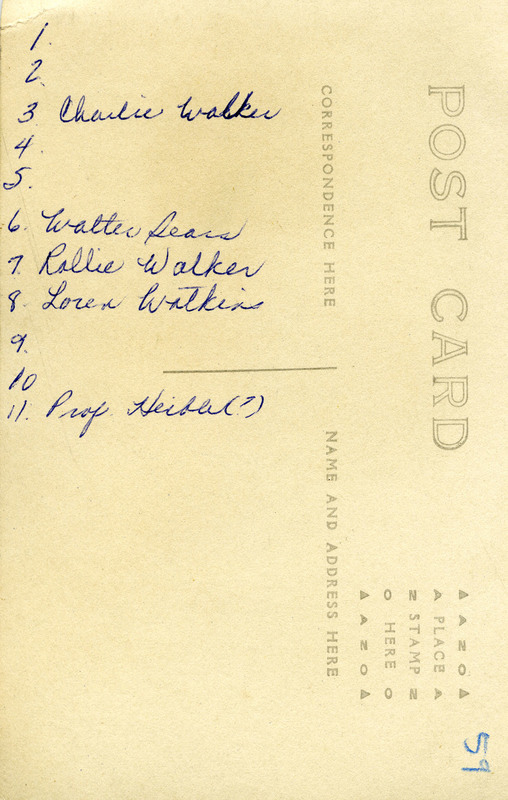 1.
2.
3 Charlie Walker
4.
5.
6. Walter Sears
7. Rollie Walker
8. Loren Watkins
9.
10
11. Prof. (?)
POST CARD
CORRESPONDENCE HERE
NAME AND ADDRESS HERE
AZO
PLACE
STAMP
HERE
AZO
59